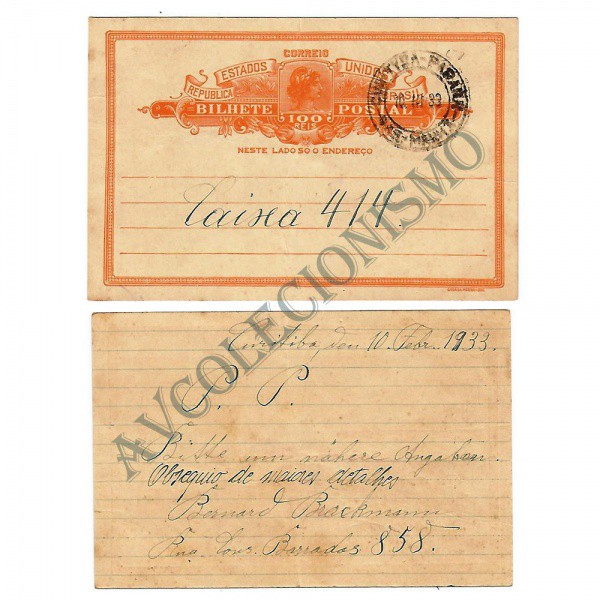 CORREIO
ESTADOS UNIDOS
REPUBLICA BRASIL
BILHETE POSTAL
100
REIS
NESTE LADO SÓ O ENDEREÇO
CURITYBA-PARANÁ
33
Caixa 414.
Curitiba, den 10. Febr. 1933.
P. P.
Bitte um nähere Angaben.
Obsequio de maiores detalhes
Bernard Brockmann
Rua Cons. Barradas 858.
AVCOLECIONISMO